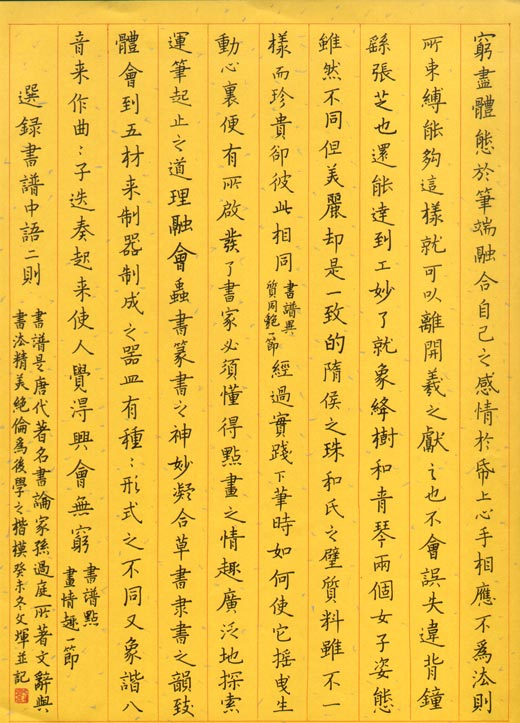 窮盡體態於筆端融合自己之感情於帋上心手相應不為法則
所束縛能夠這樣就可以離開羲之獻之也不會誤失違背鐘
繇張芝也還能達到工妙了就象絳樹和青琴兩個女子姿態
雖然不同但美麗却是一致的隋侯之珠和氏之璧質料雖不一
樣而珍貴卻彼此相同書譜異質同艶一節經過實踐下筆時如何使它摇曳生
動心裏便有所啟發了書家必須懂得點畫之情趣廣泛地探索
運筆起止之道理融會蟲書篆書之神妙凝合草書隶書之韻致
體會到五材来制器制成之器皿有種:形式之不同又象諧八
音来作曲:子迭奏起来使人覺得興會無窮
書譜點
畫情趣一節
選録書譜中語二則
書譜是唐代著名書論家孫過庭所著文辭與
書法精美絶倫為後學之楷模癸未冬文煇並記